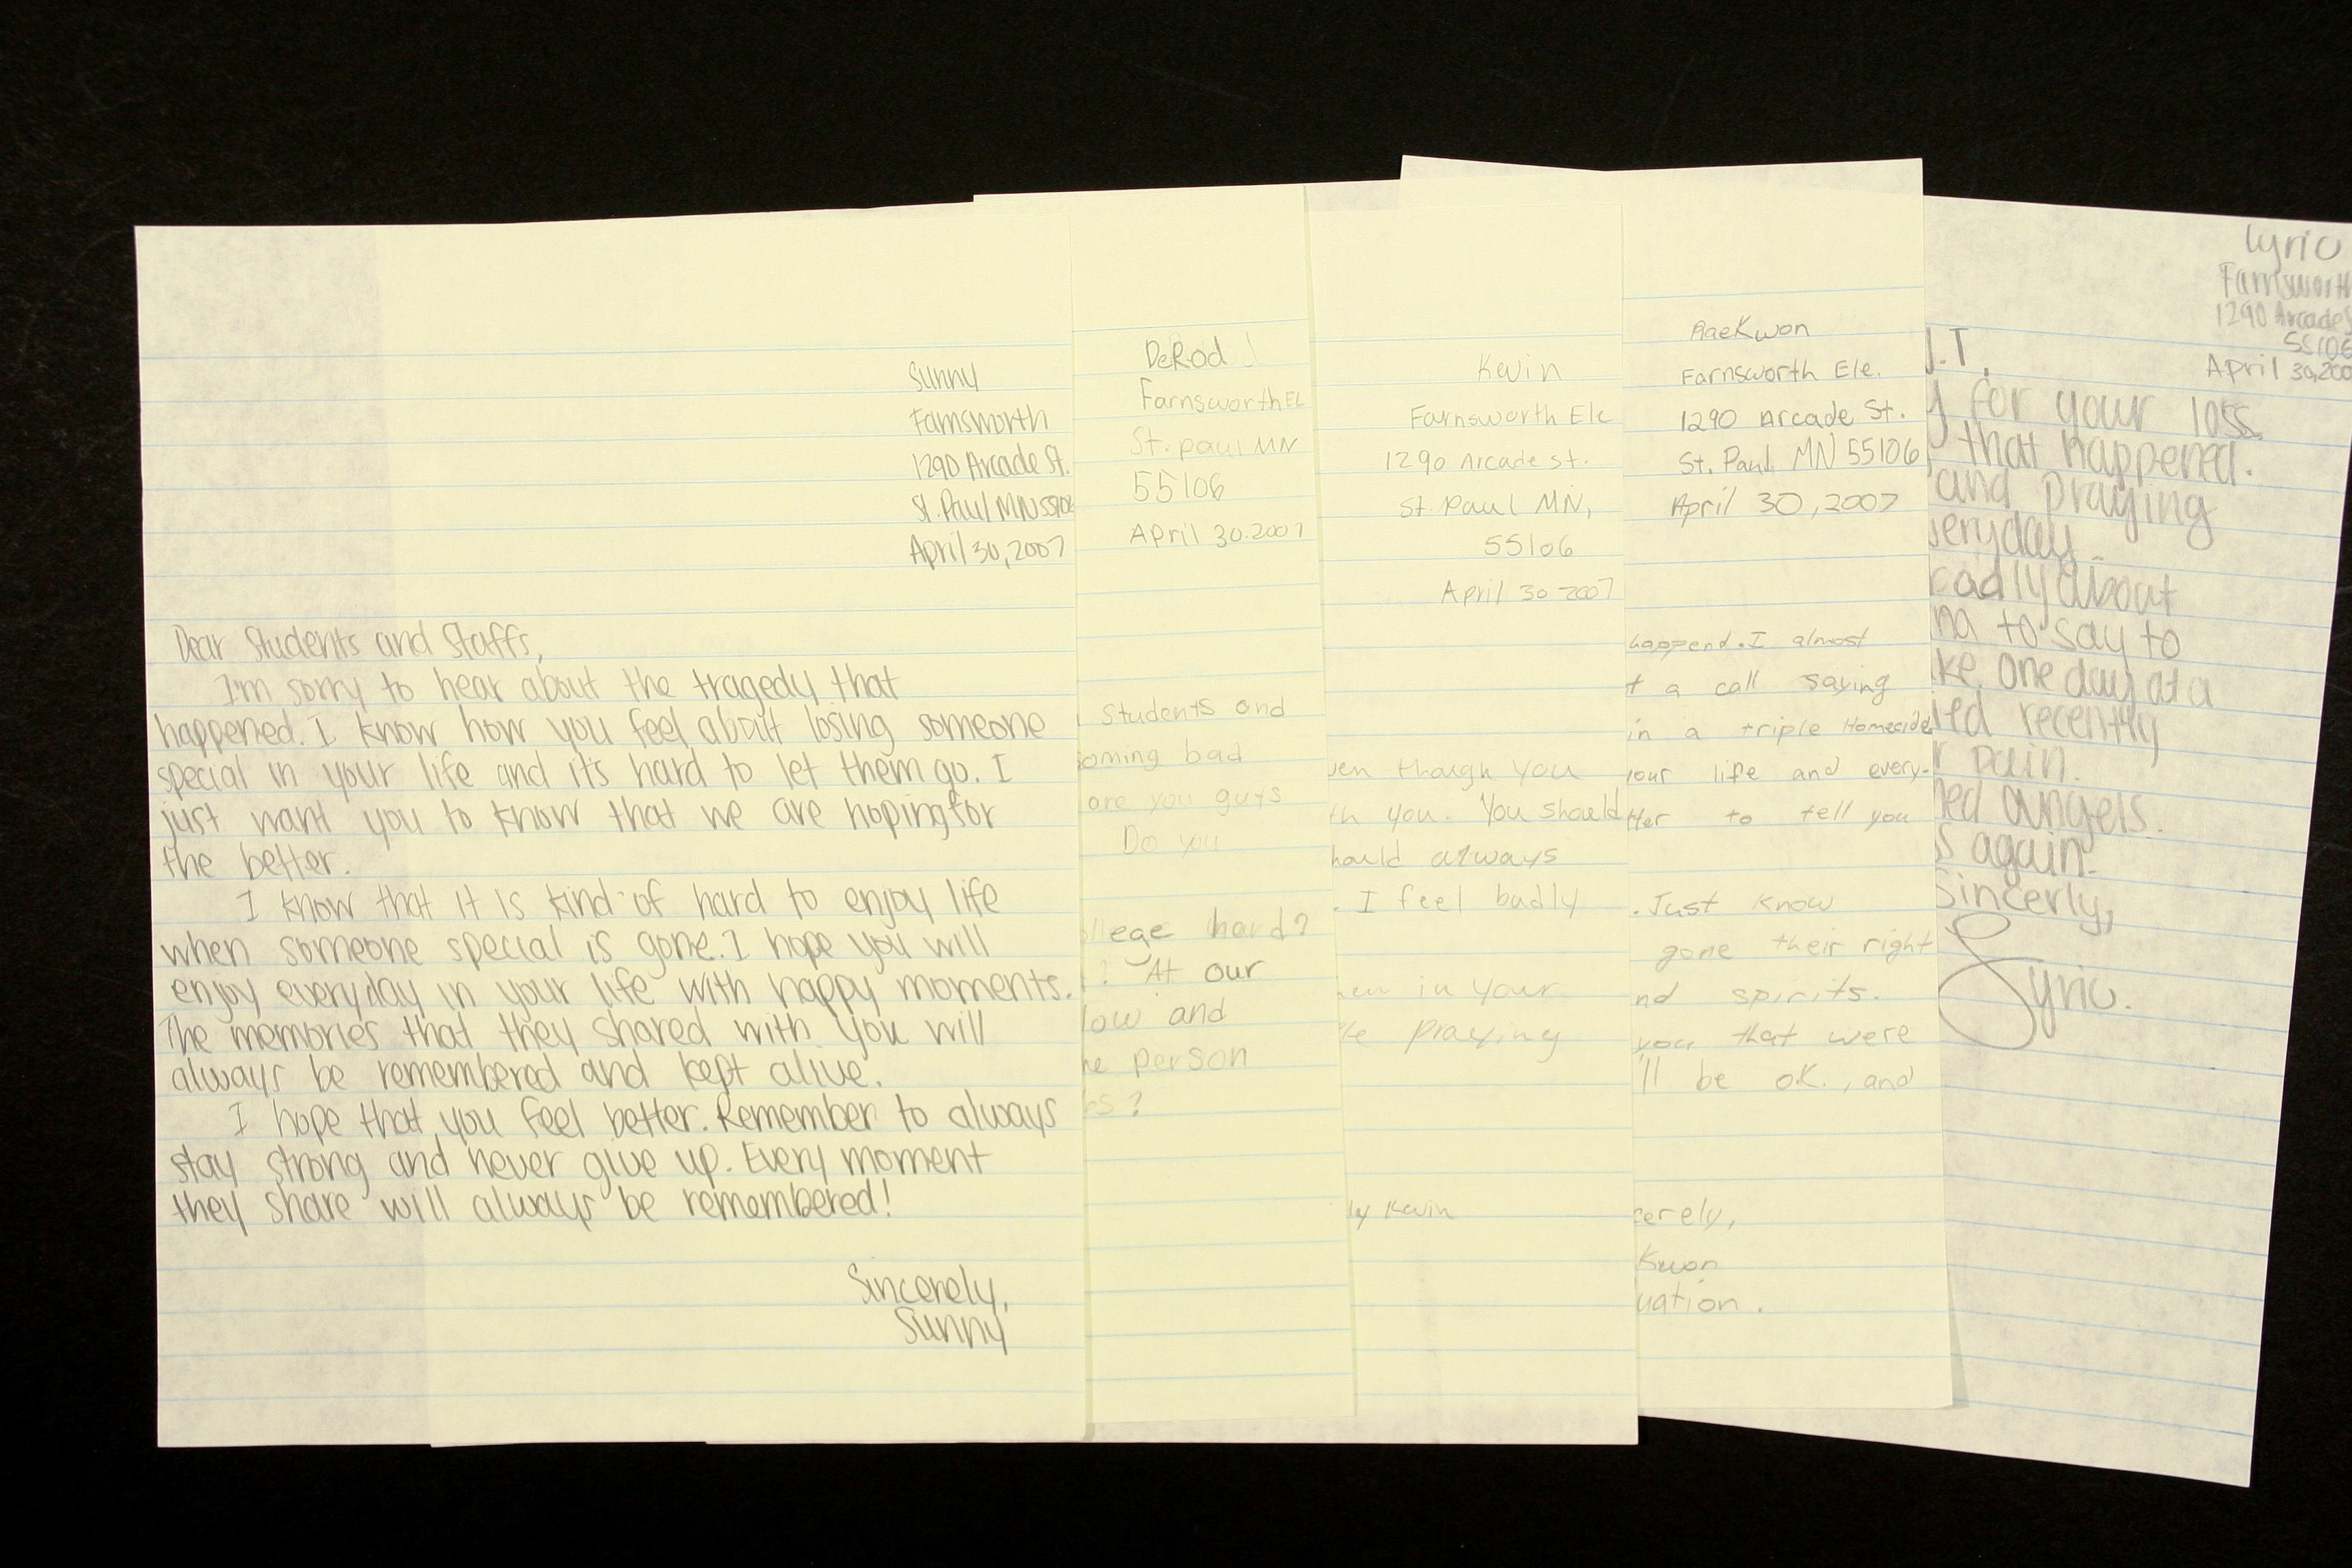 Sunny
Farnsworth
1290 Arcade St.
St. Paul MN 55106
April 30, 2007
Dear Students and Staffs,
I'm sorry to hear about the tragedy that
happened. I know how you feel about losing someone
special in your life and it's hard to let them go. I
just want you to know that we are hoping for
the better.
I know that it is kind of hard to enjoy life
when someone special is gone. I hope you will
enjoy everyday in your life with happy moments.
The memories that they shared with you will
always be remembered and kept alive.
I hope that you feel better. Remember to always
stay strong and never give up. Every moment
they share will always be remembered!
Sincerely,
Sunny
DeRod
Farnsworth El
St. paul MN
55106
April 30.2007
Students and
oming bad
are you guys
Do you
llege hard?
? At our
low and
he person
es?
Kevin
Farnsworth Ele
1290 Arcade st.
St. Paul MN,
55106
April 30 2007
ven though you
th you. You should
hould always
. I feel badly
in your
le praying
ly Kevin
RaeKwon
Farnsworth Ele.
1290 Arcade St.
St. Paul MN 55106
April 30, 2007
happend. I almost
t a call saying
in a triple Homecide
your life and every-
tter to tell you
. Just know
gone their right
nd spirits.
you that were
'll be o.K., and
cerely,
Kwon
uation.
Lyric
Farnsworth
1290 Arcade S
55106
April 30, 200
J.T.
y for your loss
that happened.
and praying
veryday.
badly about
na to say to
ke one day at a
ied recently
r pain.
ned angels.
s again.
Sincerly,
Lyric.